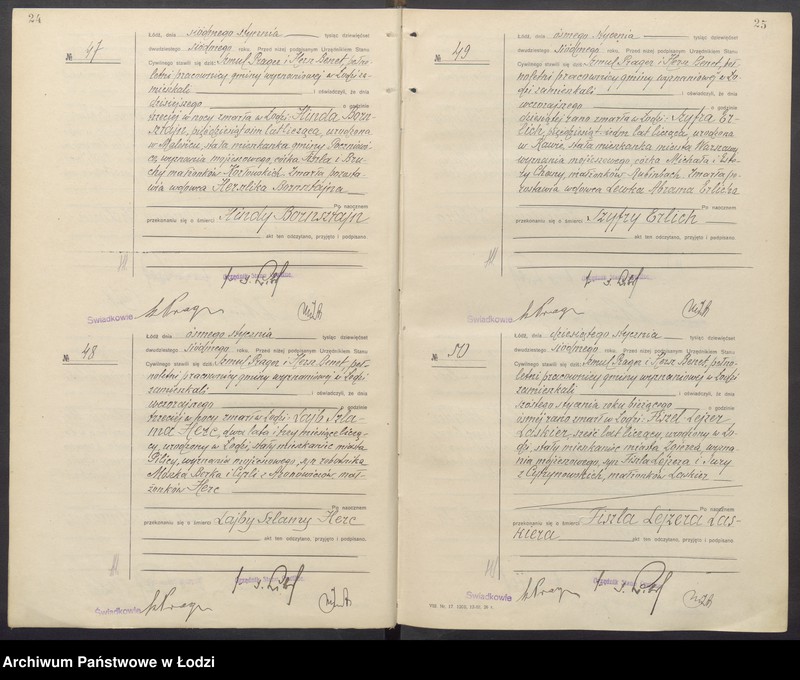 24
№ 47
Łódź, dnia siódmego stycznia tysiąc dziewięćset
dwudziestego siódmego roku. Przed niżej podpisanym Urzędnikiem Stanu
Cywilnego stawili się dziś: Szmul Prager i Hersz Benet, pełno-
letni pracownicy gminy wyznaniowej w Łodzi za-
mieszkali i oświadczyli, że dnia
dzisiejszego o godzinie
trzeciej w nocy zmarła w Łodzi: Hinda Born-
sztajn, pięćdziesiąt lat licząca, urodzona
stała mieszkanka gminy
wyznania mojżeszowego, córka i Bru-
chy małżonków Kozłowskich. Zmarła pozosta-
wia wdowca Herszlika Bornsztajna
Po naocznem
przekonaniu się o śmierci Hindy Bornsztajn
akt ten odczytano, przyjęto i podpisano.
Urzędnik Stanu Cywilnego
Świadkowie
№ 48
Łódź, dnia ósmego stycznia tysiąc dziewięćset
dwudziestego siódmego roku. Przed niżej podpisanym Urzędnikiem Stanu
Cywilnego stawili się dziś: Szmul Prager i Hersz Benet, peł-
noletni pracownicy gminy wyznaniowej w Łodzi
zamieszkali i oświadczyli, że dnia
wczorajszego o godzinie
trzeciej w nocy zmarł w Łodzi: Lajb Szla-
ma Herc, dwa lata i trzy miesiące liczą-
cy, urodzony w Łodzi, stały mieszkaniec miasta
Pilicy, wyznania mojżeszowego, syn robotnika
Moszka Berka i Cyrli z Aronowiczów mał-
żonków Herc
Po naocznem
przekonaniu się o śmierci Lajby Szlamy Herc
akt ten odczytano, przyjęto i podpisano.
Urzędnik Stanu Cywilnego
Świadkowie
25
№ 49
Łódź, dnia ósmego stycznia tysiąc dziewięćset
dwudziestego siódmego roku. Przed niżej podpisanym Urzędnikiem Stanu
Cywilnego stawili się dziś: Szmul Prager i Hersz Benet, peł-
noletni pracownicy gminy wyznaniowej w Ło-
dzi zamieszkali i oświadczyli, że dnia
wczorajszego o godzinie
dziewiątej rano zmarła w Łodzi: Szyfra Er-
lich, pięćdziesiąt siedm lat licząca, urodzona
w Rawie, stała mieszkanka miasta Warszawy
wyznania mojżeszowego, córka Michała i Este-
ry Chawy, małżonków Rubinbach. Zmarła po-
zostawia wdowca Lewka Abrama Erlicha
Po naocznem
przekonaniu się o śmierci Szyfry Erlich
akt ten odczytano, przyjęto i podpisano.
Urzędnik Stanu Cywilnego
Świadkowie
№ 50
Łódź, dnia dziesiątego stycznia tysiąc dziewięćset
dwudziestego siódmego roku. Przed niżej podpisanym Urzędnikiem Stanu
Cywilnego stawili się dziś: Szmul Prager i Hersz Benet, pełno-
letni pracownicy gminy wyznaniowej w Łodzi
zamieszkali i oświadczyli, że dnia
szóstego stycznia roku bieżącego o godzinie
ósmej rano zmarł w Łodzi: Fiszel Lejzer
Laskier, sześć lat liczący, urodzony w Ło-
dzi, stały mieszkaniec miasta Zgierza, wyzna-
nia mojżeszowego, syn i Sury
z małżonków Laskier
Po naocznem
przekonaniu się o śmierci Fiszla Lejzera Las-
kiera akt ten odczytano, przyjęto i podpisano.
Urzędnik Stanu Cywilnego
Świadkowie
Archiwum Państwowe w Łodzi